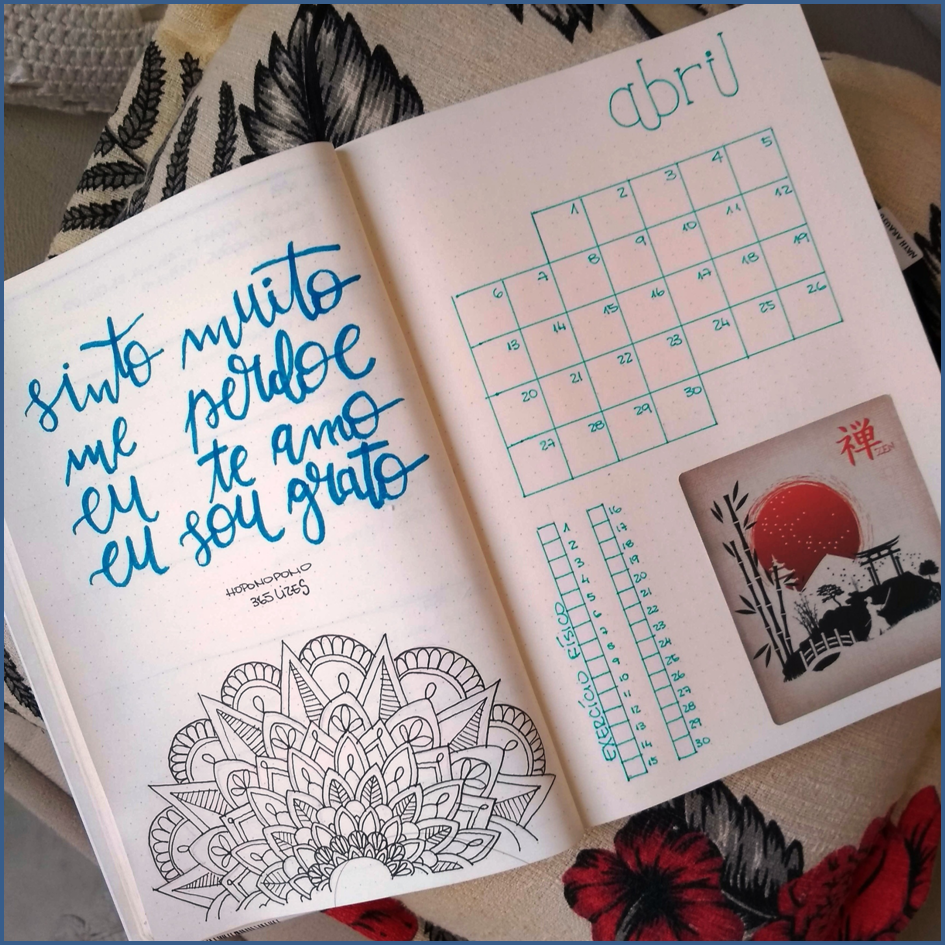 sinto muito
me perdoe
eu te amo
eu sou grato
HOPONOPONO
365
abril
1 2 3 4 5
6 7 8 9 10 11 12
13 14 15 16 17 18 19
20 21 22 23 24 25 26
27 28 29 30
EXERCÍCIO FÍSICO
1
2
3
4
5
6
7
8
9
10
11
12
13
14
15
16
17
18
19
20
21
22
23
24
25
26
27
28
29
30
禅
ZEN